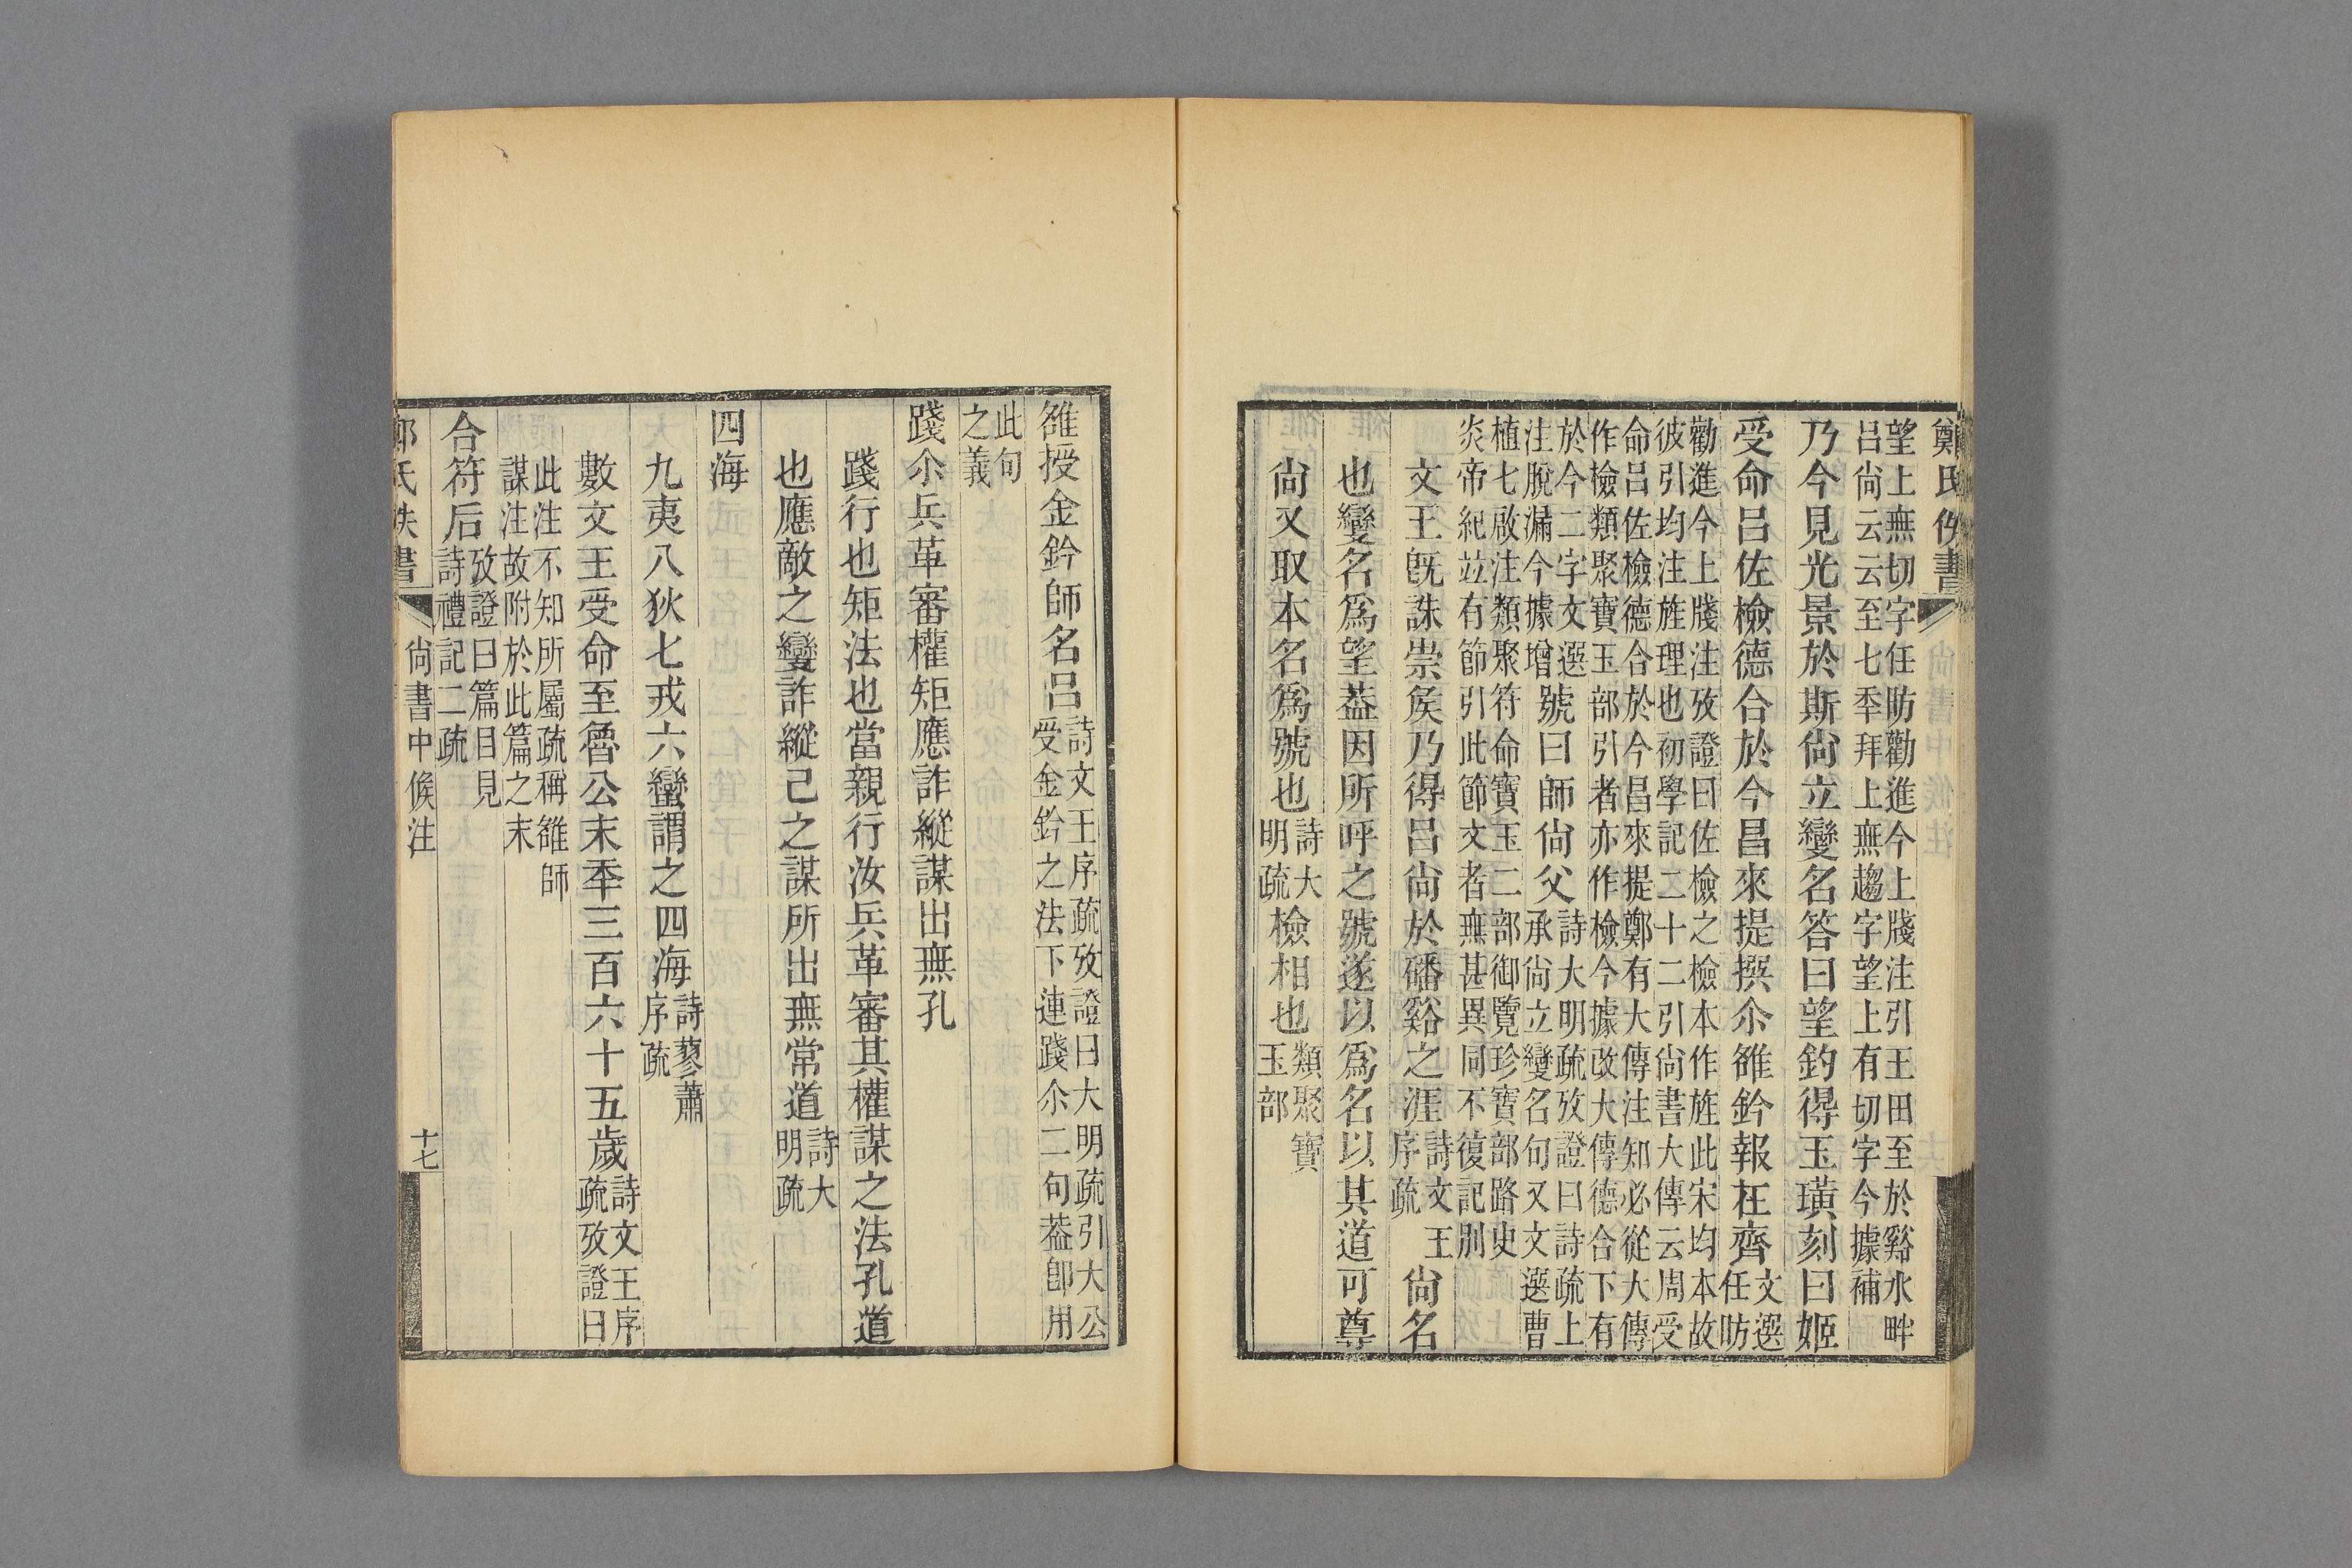 鄭氏佚書
望上無切字任昉勸進今上牋注引王田至於谿水畔
呂尙云云至七秊拜上無趨字望上有切字今據補
乃今見光景於斯尙立變名答曰望釣得玉璜刻曰姬
受命呂佐檢德合於今昌來提撰尒雒鈐報在齊
文選
任昉
勸進今上牋注攷證曰佐檢之檢本作旌此宋均本故
彼引均注旌理也初學記二十二引尙書大傳云周受
命呂佐檢德合於今昌來提鄭有大傳注知必從大傳
作檢類聚寶玉部引者亦作檢今據改大傳德合下有
於今二字文選
注脫漏今據增
號曰師尙父
詩大明疏攷證曰詩疏上
承尙立變名句又文選曹
植七啟注類聚符命寶玉二部御覽珍寶部路史
炎帝紀竝有節引此節文者無甚異同不復記別
文王旣誅崇矦乃得呂尙於磻谿之涯
詩文王
序疏
尙名
也變名爲望葢因所呼之號遂以爲名以其道可尊
尙又取本名爲號也
詩大
明疏
檢相也
類聚寶
玉部
雒授金鈐師名呂
詩文王序疏攷證曰大明疏引大公
受金鈐之法下連踐尒二句葢卽用
此句
之義
踐尒兵革審權矩應詐縱謀出無孔
踐行也矩法也當親行汝兵革審其權謀之法孔道
也應敵之變詐縱己之謀所出無常道
詩大
明疏
四海
九夷八狄七戎六蠻謂之四海
詩蓼蕭
序疏
數文王受命至魯公末秊三百六十五歲
詩文王序
疏攷證曰
此注不知所屬疏稱雒師
謀注故附於此篇之末
合符后
攷證曰篇目見
詩禮記二疏
氏佚書
尙書中候注
十七